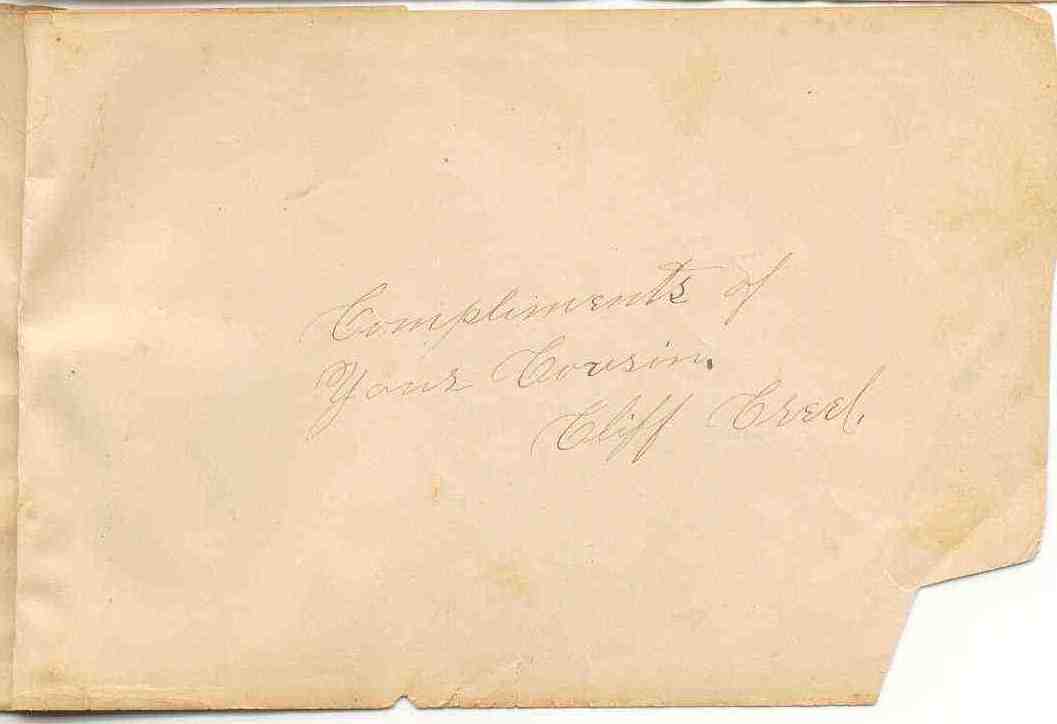 Compliments of
Your Cousin.
Cliff Creel.